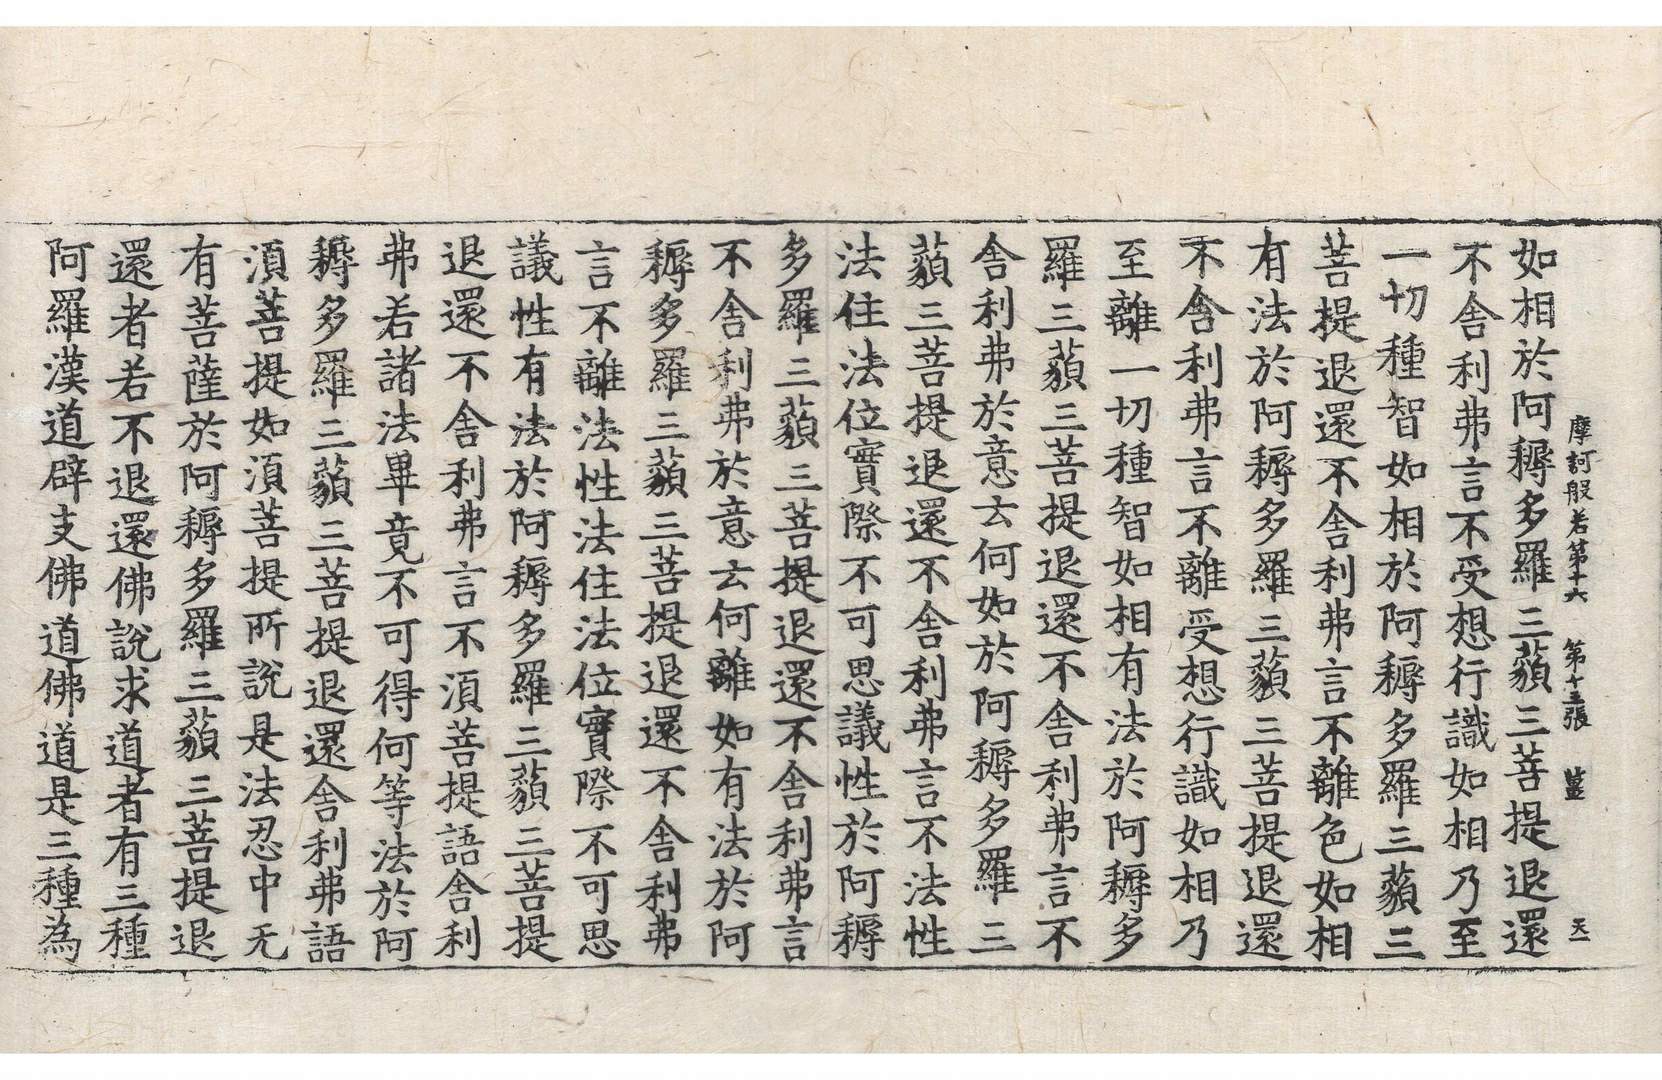 摩訶般若第十六 第十三張 薑 天一
如相於阿耨多羅三藐三菩提退還
不舍利弗言不受想行識如相乃至
一切種智如相於阿耨多羅三藐三
菩提退還不舍利弗言不離色如相
有法於阿耨多羅三藐三菩提退還
不舍利弗言不離受想行識如相乃
至離一切種智如相有法於阿耨多
羅三藐三菩提退還不舍利弗言不
舍利弗於意云何如於阿耨多羅三
藐三菩提退還不舍利弗言不法性
法住法位實際不可思議性於阿耨
多羅三藐三菩提退還不舍利弗言
不舍利弗於意云何離如有法於阿
耨多羅三藐三菩提退還不舍利弗
言不離法性法住法位實際不可思
議性有法於阿耨多羅三藐三菩提
退還不舍利弗言不須菩提語舍利
弗若諸法畢竟不可得何等法於阿
耨多羅三藐三菩提退還舍利弗語
須菩提如須菩提所說是法忍中无
有菩薩於阿耨多羅三藐三菩提退
還者若不退還佛說求道者有三種
阿羅漢道辟支佛道佛道是三種為